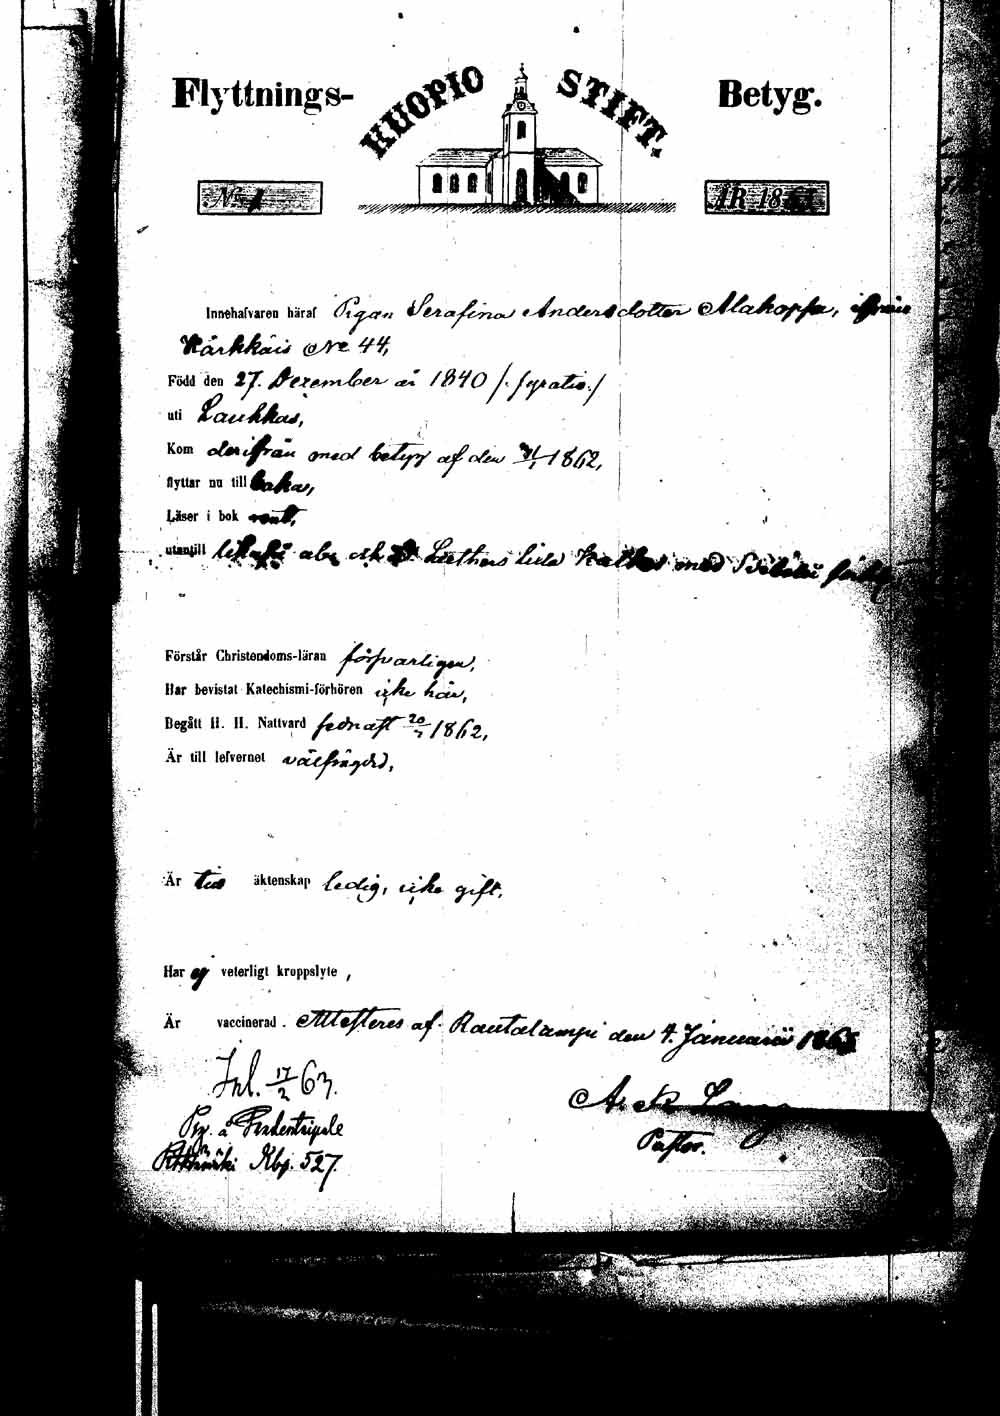 Flyttnings- KUOPIO STIFT. Betyg.
No 1 ÅR 18
Innehafvaren häraf Pigan Serafina Andersdotter Alakoppa, ifrån
Kärkkäis No 44,
Född den 27. Dezember år 1840 /.
uti Laukkas,
Kom derifrån med betyg af den 1862,
flyttar nu till baka,
Läser i bok rent,
utantill abc och D: Luthers lilla med
Förstår Christendoms-läran försvarligen,
Har bevistat Katechismi-förhören icke här,
Begått H. H. Nattvard sednast 20/7 1862,
Är till lefvernet välfrägdad,
Är till äktenskap ledig, icke gift,
Har ej veterligt kroppslyte,
Är vaccinerad. Attesteras af Rautalampi den 4. Januarii 1863
Inl. 17/2 63.
Pig. å
Kbp. 527.
Pastor.